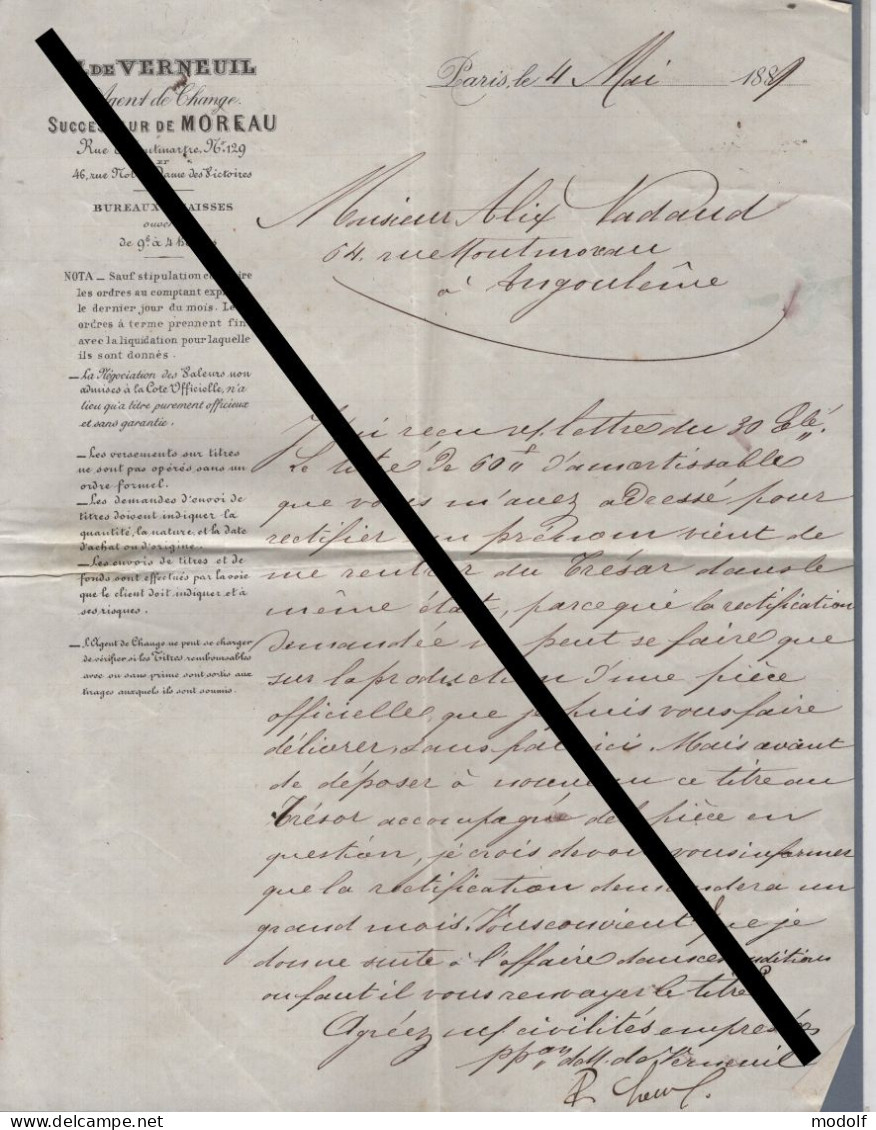 DE VERNEUIL
Agent de Change.
SUCCESSEUR DE MOREAU
Rue Montmartre, No. 129
46, rue Notre Dame des Victoires
BUREAUX CAISSES
de 9h à 4 heures
NOTA _ Sauf stipulation contraire
les ordres au comptant expirent
le dernier jour du mois. Les
ordres à terme prennent fin
avec la liquidation pour laquelle
ils sont donnés.
_ La Négociation des Valeurs non
admises à la Cote Officielle, n'a
lieu qu'à titre purement officieux
et sans garantie.
_ Les versements sur titres
ne sont pas opérés sans un
ordre formel.
_ Les demandes d'envoi de
titres doivent indiquer la
quantité, la nature, et la date
d'achat ou d'origine.
_ Les envois de titres et de
fonds sont effectués par la voie
que le client doit indiquer et à
ses risques.
_ L'Agent de Change ne peut se charger
de vérifier si les Titres remboursables
avec ou sans prime sont sortis aux
tirages auxquels ils sont soumis.
Paris, le 4 Mai 1889
Monsieur Alix Vadaud
64. rue Montmoreau
à Angoulême
J'ai reçu v/ lettre du 30 
Le titre de 60 f d'amortissable
que vous m'avez adressé pour
rectifier un prénom vient de
me rentrer du Trésor dans le
même état, parce qué la rectification
demandée ne peut se faire que
sur la production d'une pièce
officielle, que je puis vous faire
délivrer, sans frais ici. Mais avant
de déposer à nouveau ce titre au
Trésor accompagné de la pièce en
question, je crois devoir vous informer
que la rectification demandera un
grand mois. Vous convient il que je
donne suite à l'affaire dans ces conditions
ou faut il vous renvoyer le titre
Agréez mes civilités empressées
ppon de M. de Verneuil
modolf